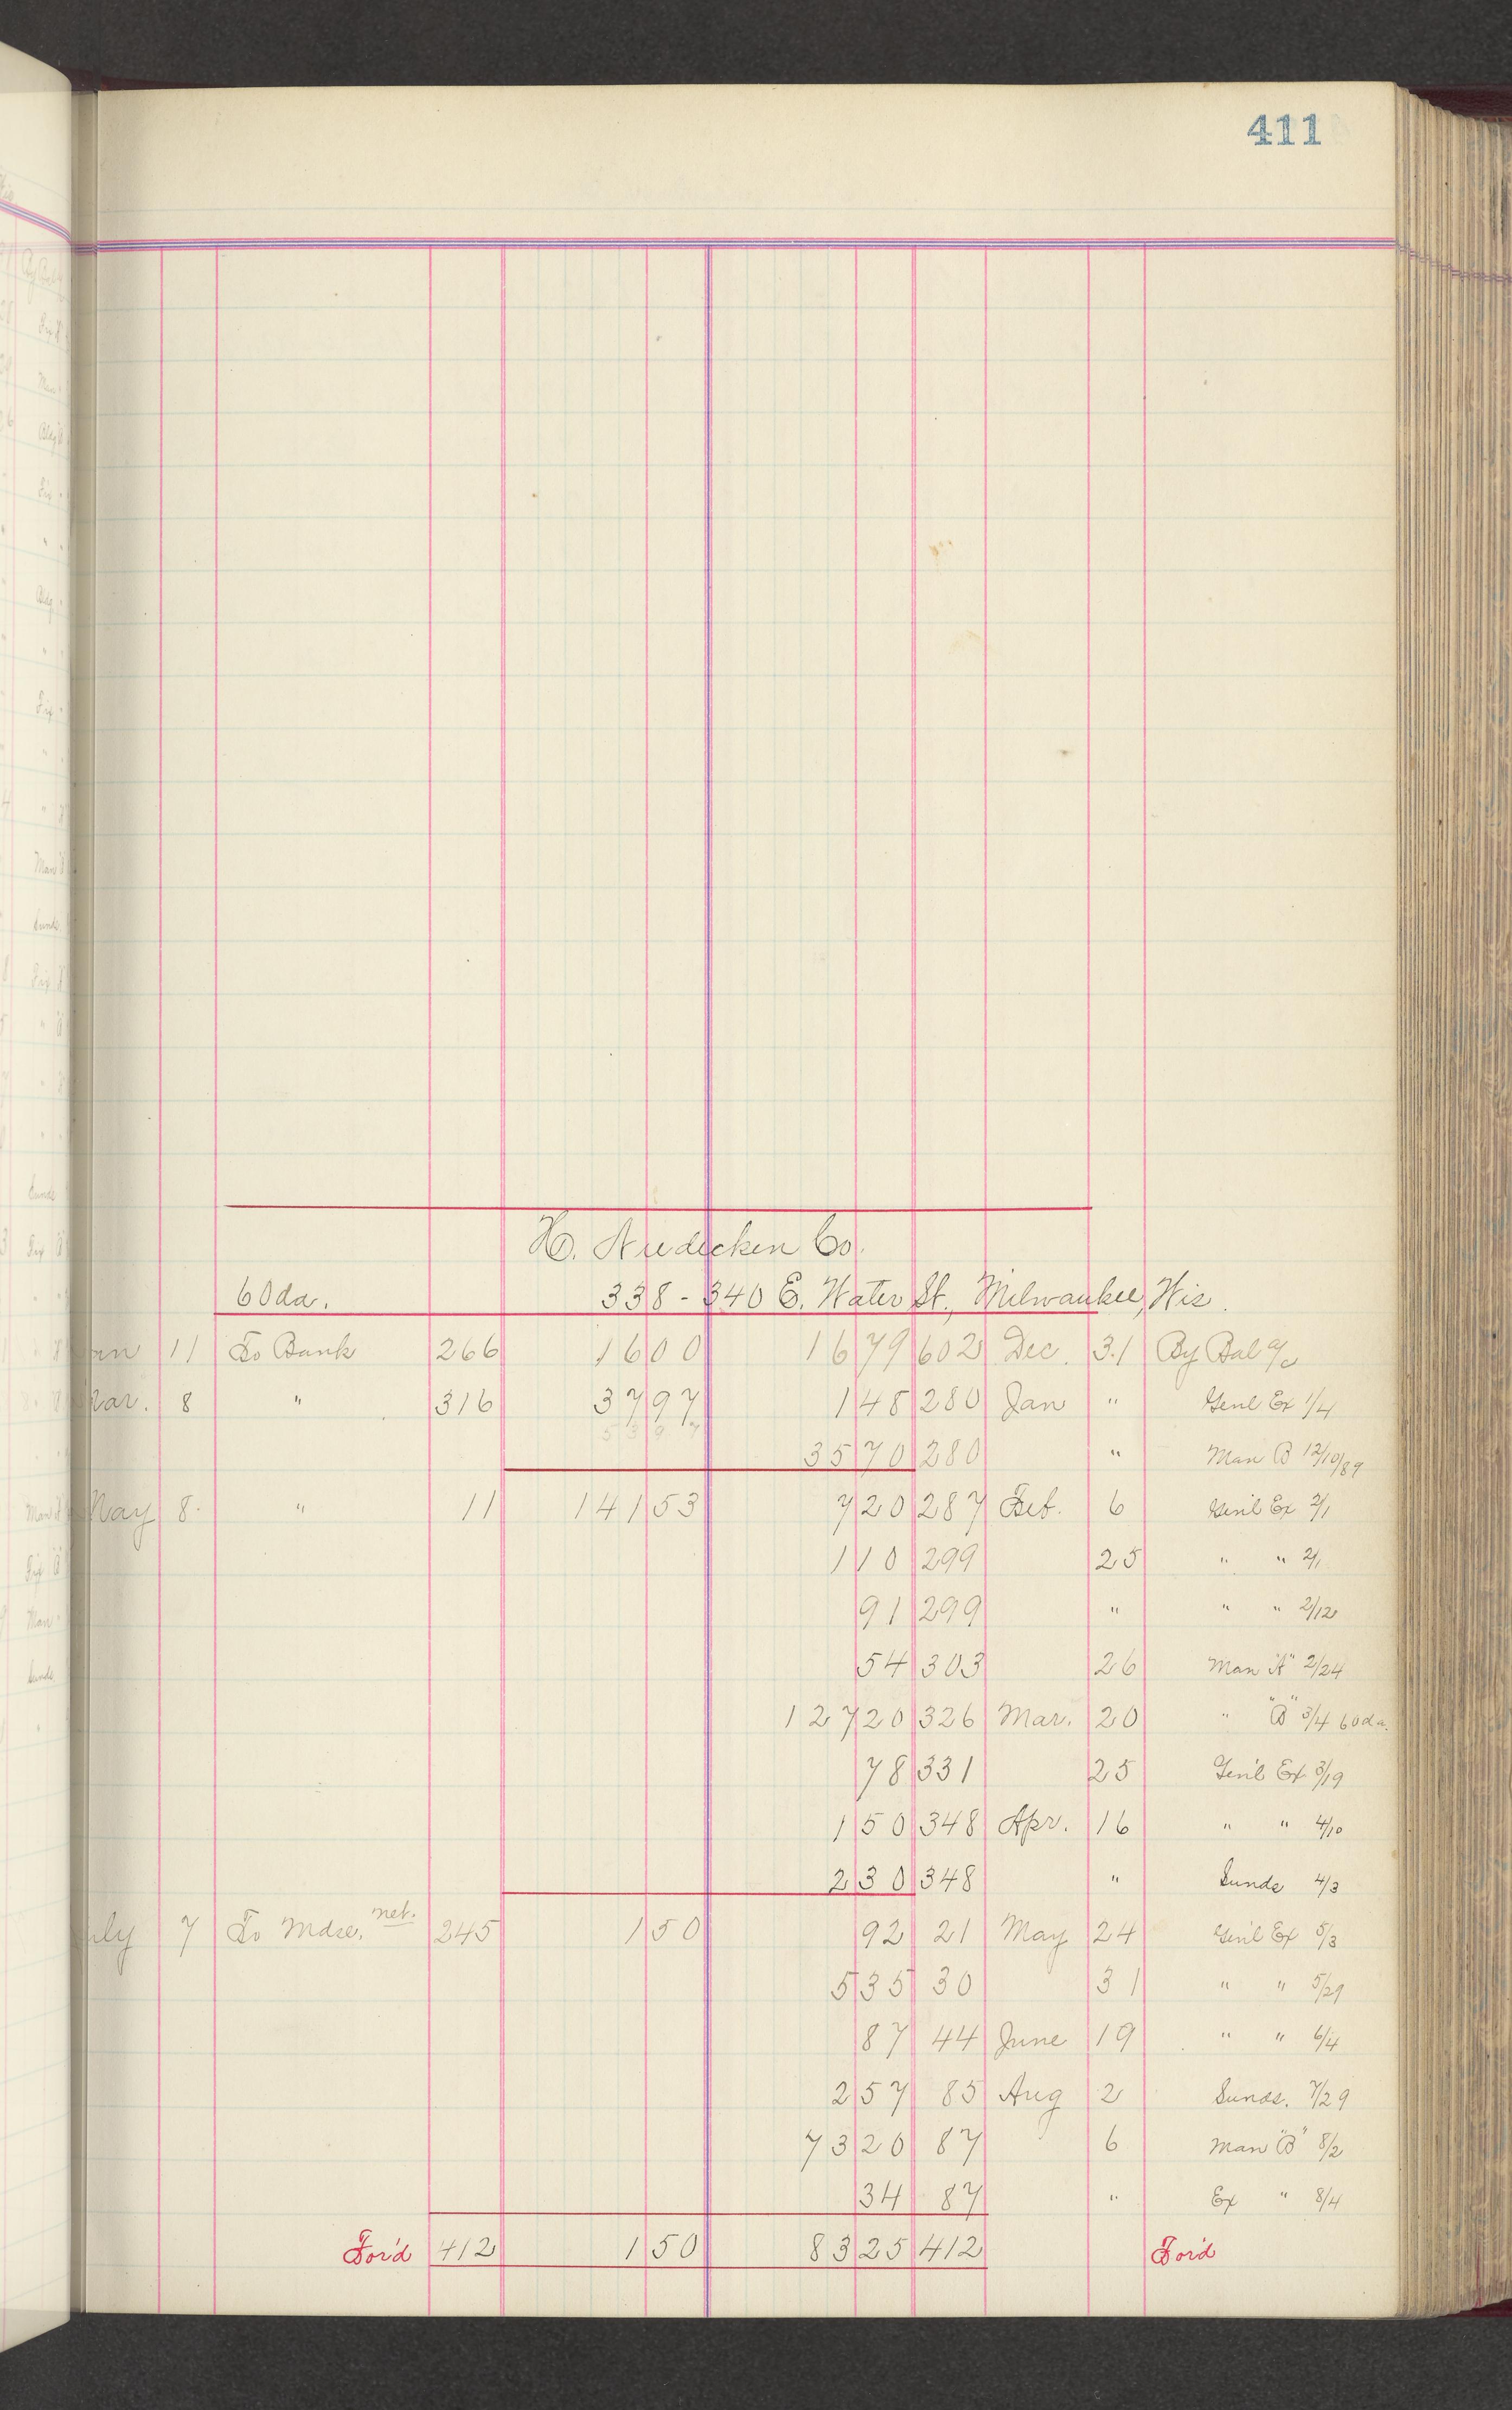 411
H. Niedecken Co.
60 da. 338-340 E. Water St., Milwaukee, Wis.
11 To Bank 266 16 00 16 79 602 Dec. 31 By Bal a/c
Mar. 8 " 316 37 97 1 48 280 Jan " Genl Ex 1/4
53 97 35 70 280 " Man B 12/10/89
May 8 " 11 141 53 7 20 287 Feb. 6 Gen'l Ex 2/1
1 10 299 25 " " 2/1
91 299 " " " 2/12
54 303 26 Man "A" 2/24
127 20 326 Mar. 20 " "B" 3/4 60 da.
78 331 25 Gen'l Ex 3/19
1 50 348 Apr. 16 " " 4/10
2 30 348 " Sunds 4/3
July 7 To Mdse. net. 245 1 50 92 21 May 24 Gen'l Ex 5/3
5 35 30 31 " " 5/29
87 44 June 19 " " 6/4
2 57 85 Aug 2 Sunds. 7/29
73 20 87 6 Man "B" 8/2
34 87 " Ex " 8/4
For'd 412 1 50 83 25 412 For'd